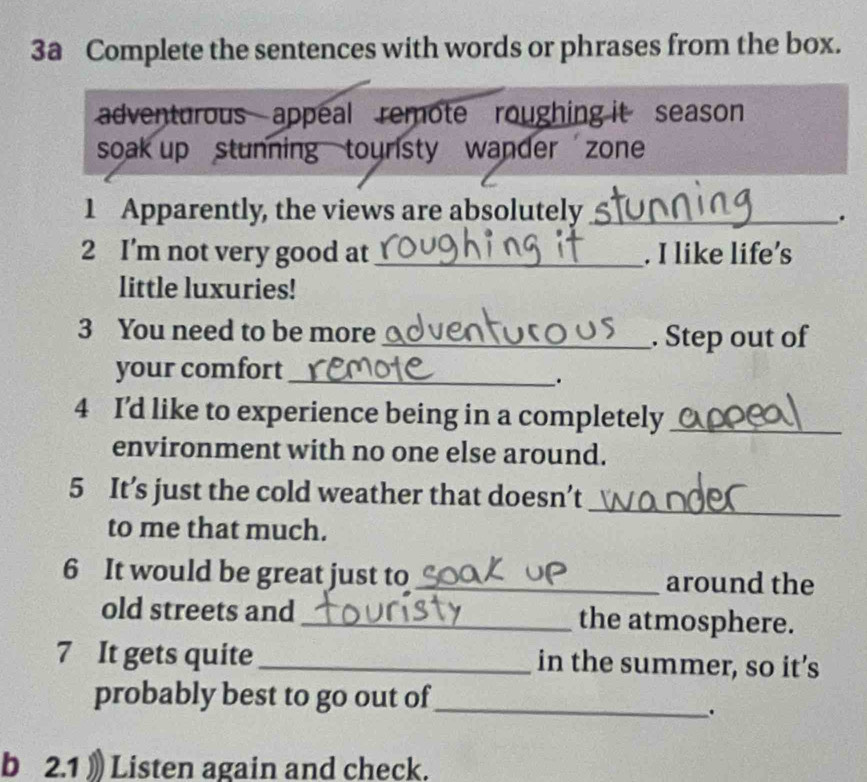 3a Complete the sentences with words or phrases from the box.
adventurous appeal remote roughing it season
soak up stunning touristy wander zone
1 Apparently, the views are absolutely stunning.
2 I'm not very good at roughing it. I like life's
little luxuries!
3 You need to be more adventurous. Step out of
your comfort remote.
4 I'd like to experience being in a completely appeal
environment with no one else around.
5 It's just the cold weather that doesn't wander
to me that much.
6 It would be great just to soak up around the
old streets and touristy the atmosphere.
7 It gets quite ____ in the summer, so it's
probably best to go out of ____.
b 2.1 Listen again and check.